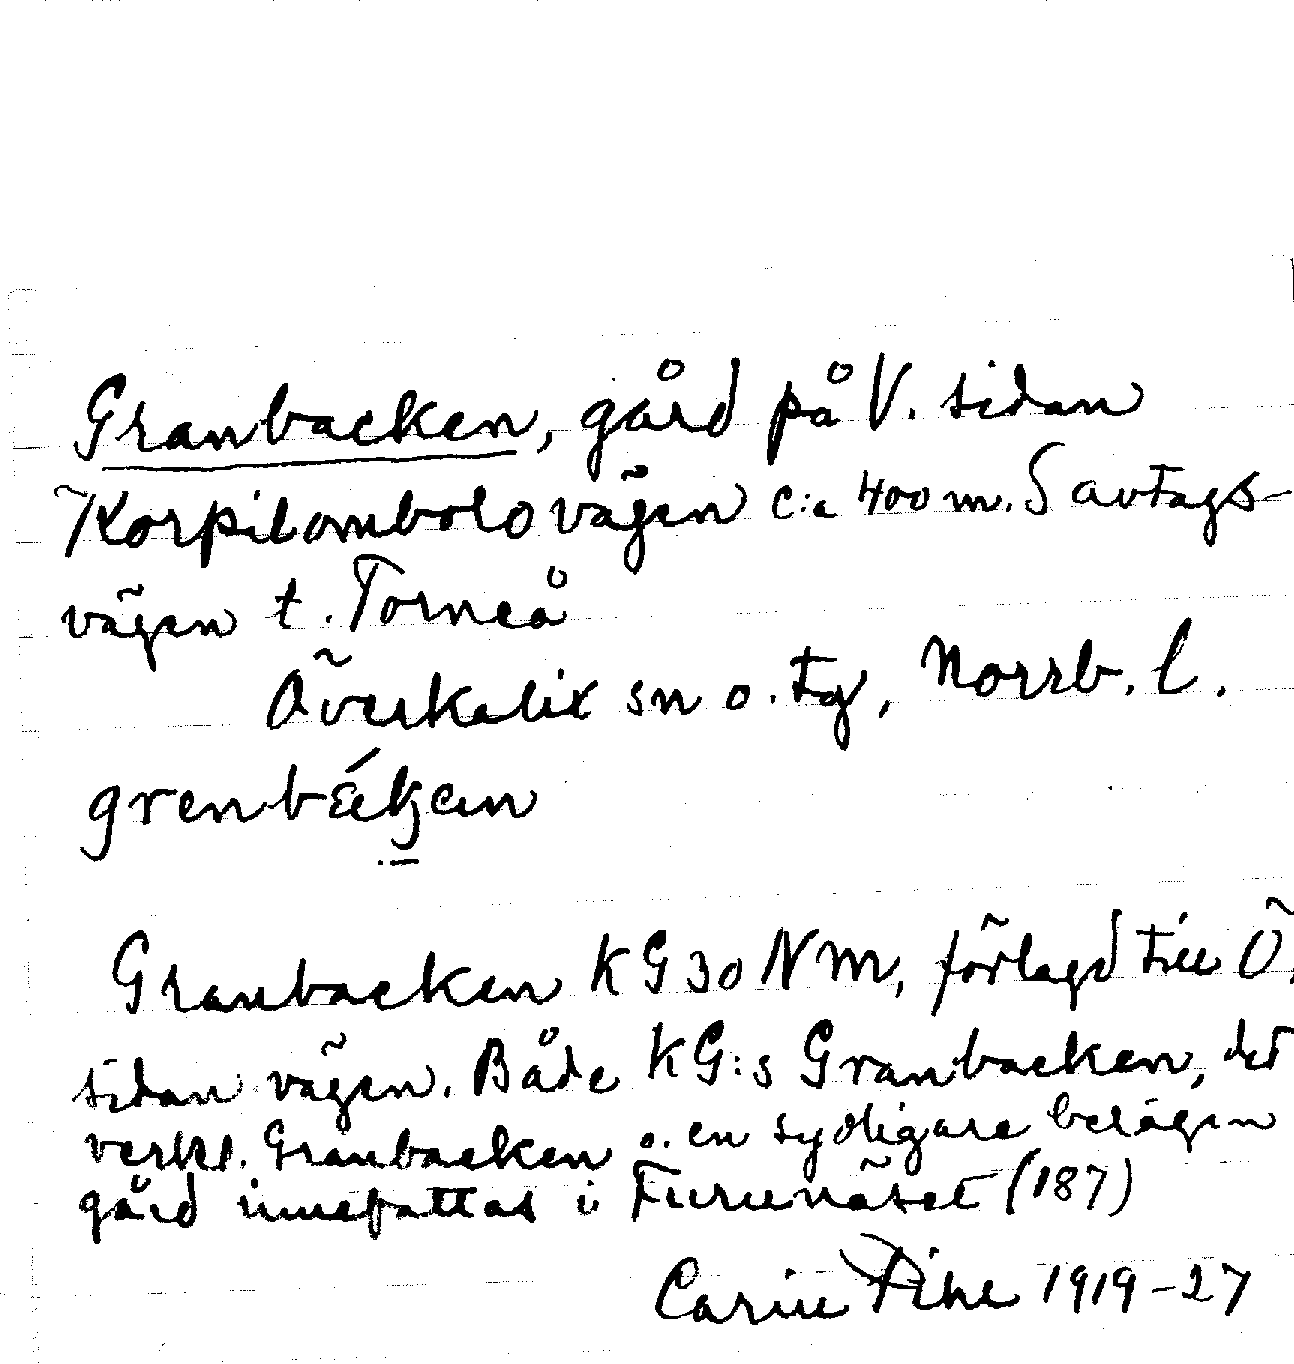 Granbacken, gård på V. sidan
Korpilombolovägen c:a 400 m. S avtags-
vägen t. Torneå
Överkalix sn o. tg, Norrb. l.
grenbækjen
Granbacken KG 30 NM, förlagd till Ö.
sidan vägen. Både KG:s Granbacken, det
verkl. Granbacken o. en sydligare belägen
gård innefattas i Furunäset (187)
Carin Pihl 1919-27